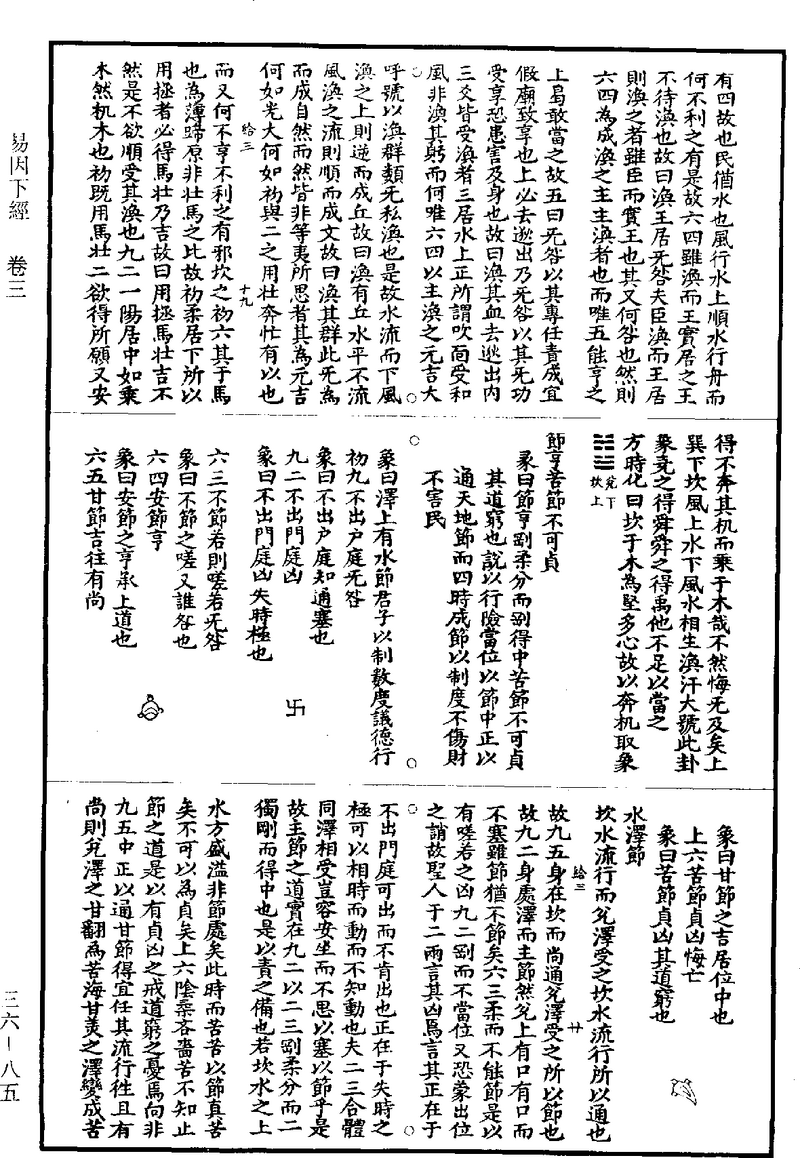 易因下經　卷三
有四故也民猶水也風行水上順水行舟而
何不利之有是故六四雖渙而王實居之王
不待渙也故曰渙王居无咎夫臣渙而王居
則渙之者雖臣而實王也其又何咎也然則
六四為成渙之主主渙者也而唯五能享之
上曷敢當之故五曰无咎以其專任責成宜
假廟致享也上必去逖出乃无咎以其无功
受享恐患害及身也故曰渙其血去逖出內
三爻皆受渙者三居水上正所謂吹萬受和
風非渙其躬而何唯六四以主渙之元吉大
呼號以渙群類无私渙也是故水流而下風
渙之上則逆而成丘故曰渙有丘水平不流
風渙之流則順而成文故曰渙其群此旡為
而成自然而然皆非等夷所思者其為元吉
何如光大何如初與二之用壯奔忙有以也
給三　十九
而又何不亨不利之有邪坎之初六其于馬
也為薄蹄原非壯馬之比故初柔居下所以
用拯者必得馬壯乃吉故曰用拯馬壯吉不
然是不欲順受其渙也九二一陽居中如乘
木然机木也初既用馬壯二欲得所願又安
得不奔其机而乘于木哉不然悔无及矣上
巽下坎風上水下風水相生渙汗大號此卦
象堯之得舜舜之得禹他不足以當之
方時化曰坎于木為堅多心故以奔机取象
䷻兌下坎上
節亨苦節不可貞
彖曰節亨剛柔分而剛得中苦節不可貞
其道窮也說以行險當位以節中正以
通天地節而四時成節以制度不傷財
不害民
象曰澤上有水節君子以制數度議德行
初九不出户庭无咎
象曰不出户庭知通塞也
九二不出門庭凶
象曰不出門庭凶失時極也
卐
六三不節若則嗟若无咎
象曰不節之嗟又誰咎也
六四安節亨
象曰安節之亨承上道也
六五甘節吉往有尚
象曰甘節之吉居位中也
上六苦節貞凶悔亡
象曰苦節貞凶其道窮也
水澤節
坎水流行而兌澤受之坎水流行所以通也
給三　廿
故九五身在坎而尚通兌澤受之所以節也
故九二身處澤而主節然兌上有口有口而
不塞雖節猶不節矣六三柔而不能節是以
有嗟若之凶九二剛而不當位又恐蒙出位
之誚故聖人于二兩言其凶焉言其正在于
不出門庭可出而不肯出也正在于失時之
極可以相時而動而不知動也夫二三合體
同澤相受豈容安坐而不思以塞以節乎是
故主節之道實在九二以二三剛柔分而二
獨剛而得中也是以責之備也若坎水之上
水方盛溢非節處矣此時而苦苦以節真苦
矣不可以為貞矣上六陰柔吝嗇苦不知止
節之道是以有貞凶之戒道窮之憂焉向非
九五中正以通甘節得宜任其流行徃且有
尚則兌澤之甘翻為苦海甘美之澤變成苦
三六－八五